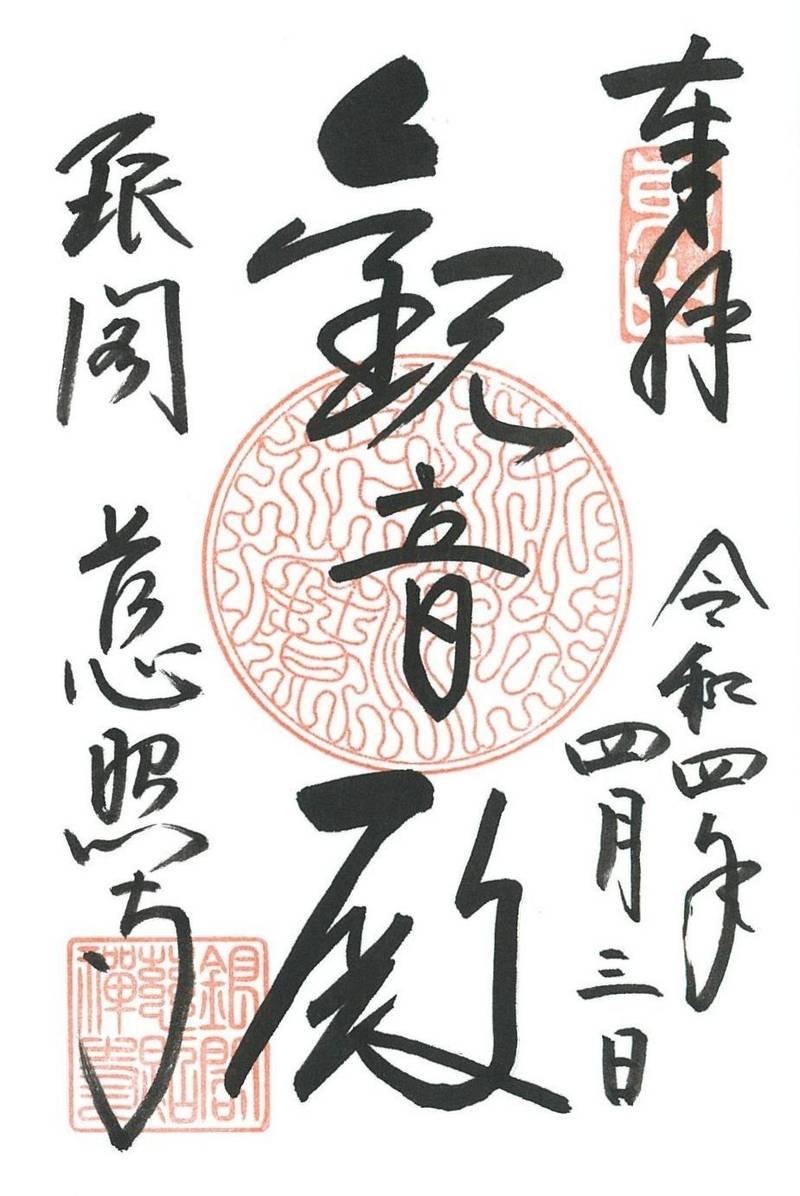 奉拝
令和四年
四月三日
観音殿
銀閣 慈照寺
銀閣
慈照
禅寺